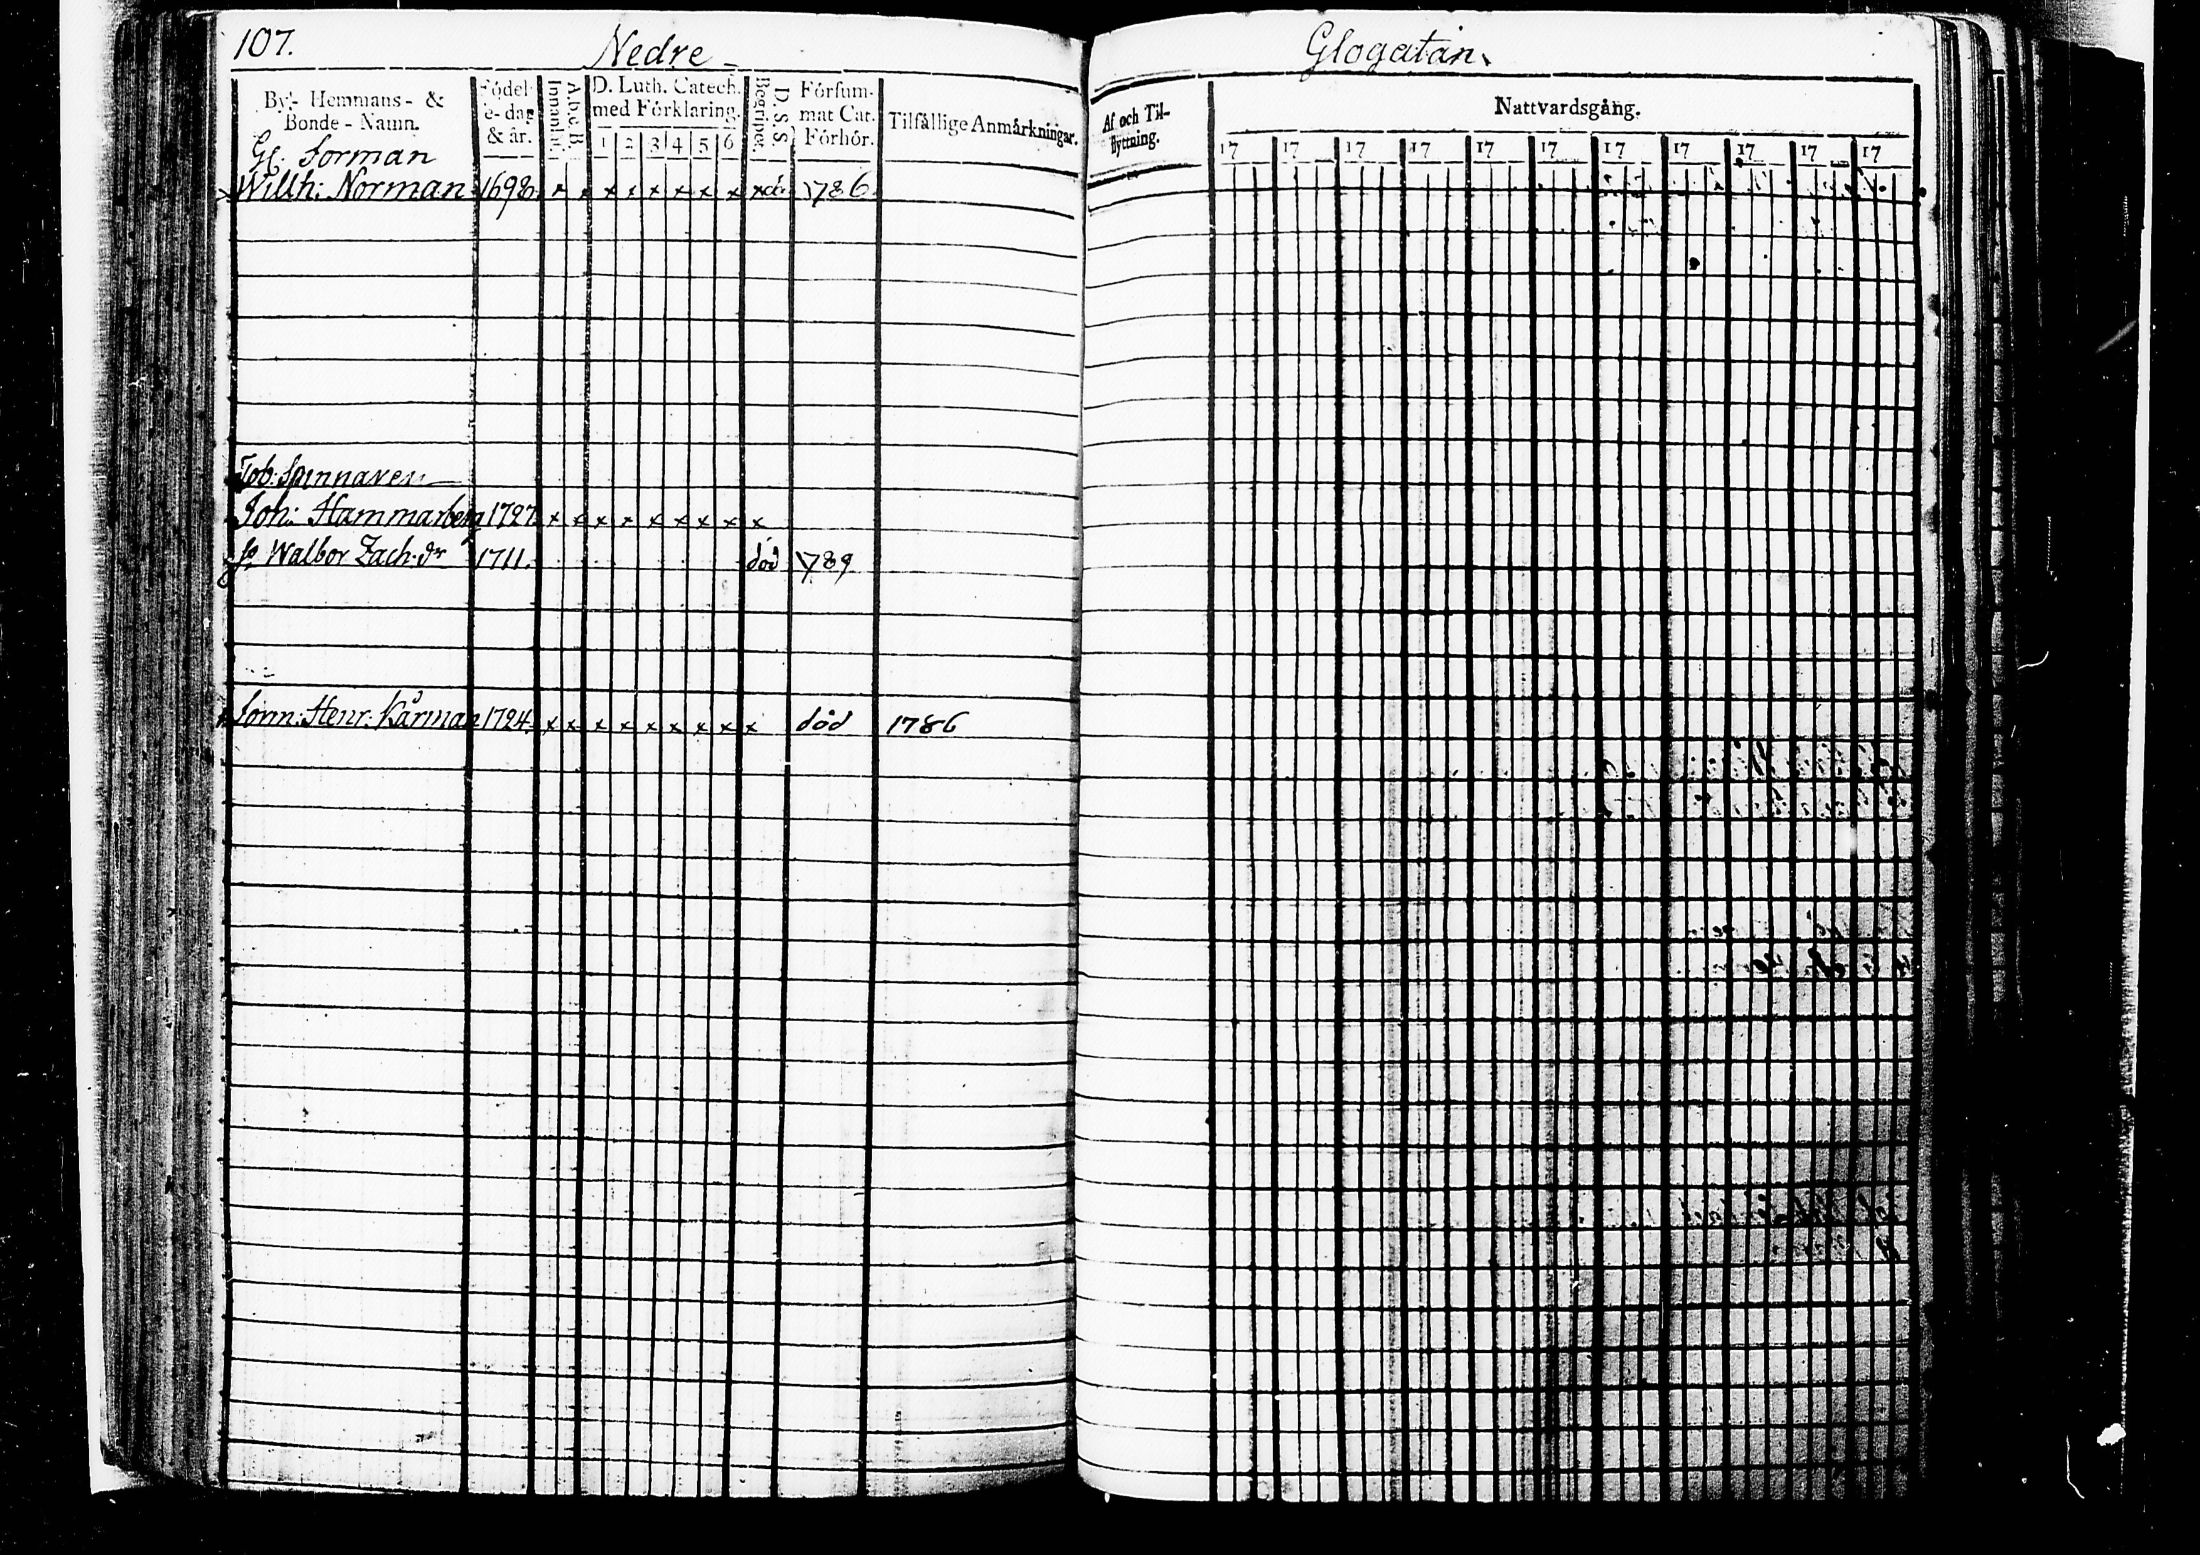 107. Nedre Glogatan.
By- Hemmans- & Bonde-Namn.
Födelse-dag & år.
Innanläs.
A.b.c. B.
D. Luth. Catech. med Förklaring.
1 2 3 4 5 6
Begriper
D. S. S.
Försummat Cat. Förhör.
Tilfällige Anmärkningar.
Af och Til-flyttning.
Nattvardsgång.
17 17 17 17 17 17 17 17 17 17 17
Gl. Sorman
Willh: Norman 1698. x x x x x x x x x död 1786.
Tob. Spinnaren
Joh: Hammarberg 1727. x x x x x x x x x
Walbor Zach.dr 1711. död 1789
Henr: Kårman 1724. x x x x x x x x x död 1786